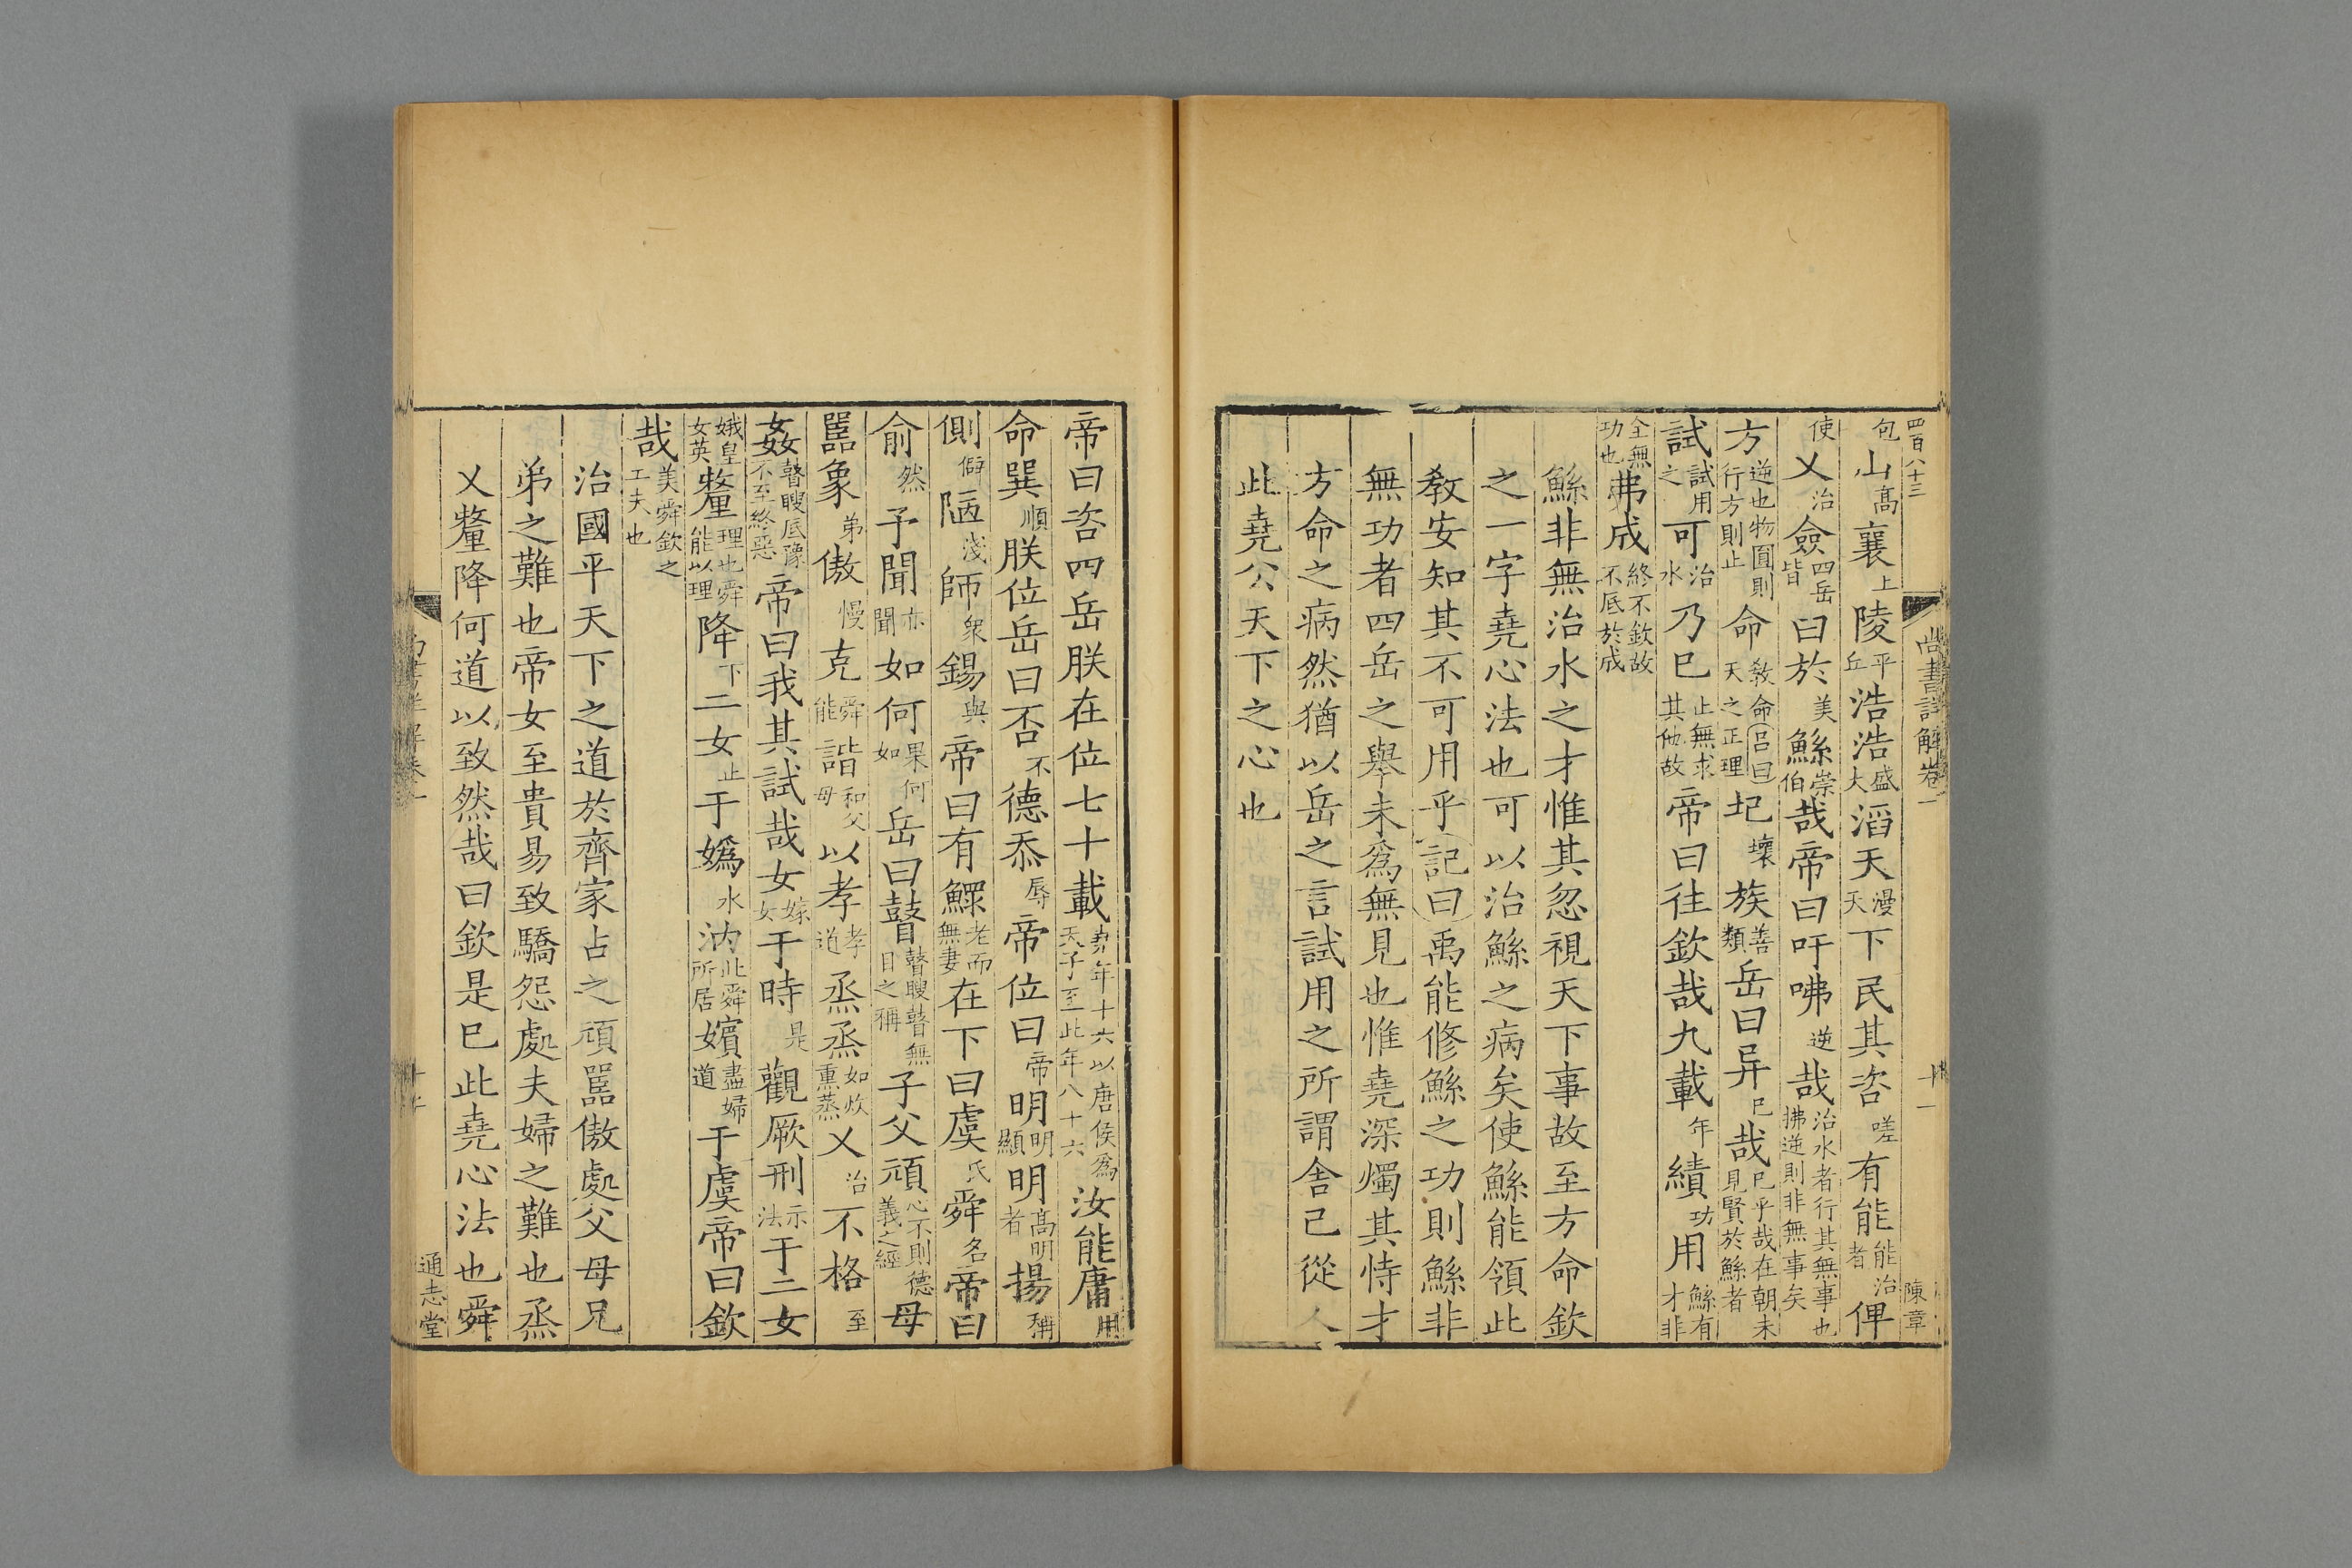 四百八十三
尚書詳解卷一
十一
陳章
包山高襄上陵平丘浩浩盛大滔天漫天下民其咨嗟有能能治者俾
使乂治僉四岳皆曰於美鯀崇伯哉帝曰吁咈逆哉治水者行其無事也拂逆則非無事矣
方逆也物圓則行方則止命教命呂曰天之正理圮壞族善類岳曰异已哉已乎哉在朝未見賢於鯀者
試試用之可治水乃已止無求其他故帝曰往欽哉九載年績功用鯀有才非
全無功也弗成終不欽故不底於成
鯀非無治水之才惟其忽視天下事故至方命欽
之一字堯心法也可以治鯀之病矣使鯀能領此
敎安知其不可用乎記曰禹能修鯀之功則鯀非
無功者四岳之舉未爲無見也惟堯深燭其恃才
方命之病然猶以岳之言試用之所謂舍己從人
此堯公天下之心也
帝曰咨四岳朕在位七十載堯年十六以唐侯爲天子至此年八十六汝能庸用
命巽順朕位岳曰否不德忝辱帝位曰帝明明明顯明高明者揚稱
側僻陋淺師衆錫與帝曰有鰥老而無妻在下曰虞氏舜名帝曰
俞然予聞亦聞如何果何如岳曰瞽瞽瞍瞽無目之稱子父頑心不則德義之經母
嚚象弟傲慢克舜能諧和父母以孝孝道烝烝如炊熏蒸乂治不格至
姦瞽瞍底豫不至終惡帝曰我其試哉女嫁女于時是觀厥刑示法于二女
娥皇女英釐理也舜能以理降下二女止于嬀水汭此舜所居嬪盡婦道于虞帝曰欽
哉美舜欽之工夫也
治國平天下之道於齊家占之頑嚚傲處父母兄
弟之難也帝女至貴易致驕怨處夫婦之難也烝
乂釐降何道以致然哉曰欽是已此堯心法也舜
通志堂